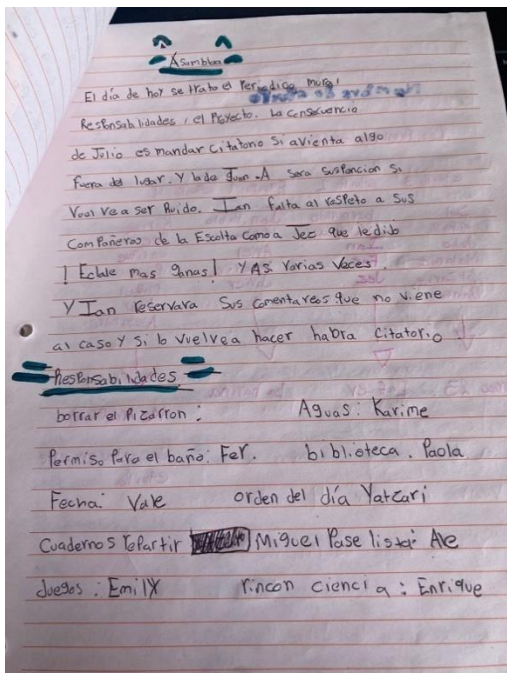 Asamblea
El día de hoy se trato el Periodico mural
Responsabilidades, el Proyecto. La Consecuencia
de Julio es mandar Citatorio Si avienta algo
fuera del lugar. Y la de Juan. A sera suspencion si
Vuelve a ser Ruido. Ian falta al respeto a Sus
Compañeros de la Escolta como a Jez que le dijo
¡ Echale mas ganas! Y AS Varias Veces.
Y Ian reservara Sus comentareos que no viene
al caso Y si lo Vuelve a hacer habra Citatorio
Responsabilidades
borrar el Pizarron : Aguas : Karime
Permiso Para el baño: Fer. biblioteca. Paola
Fecha: Vale orden del día Yatzari
Cuadernos repartir Miguel Pase lista: Ale
Juegos : Emily rincon ciencia : Enrique